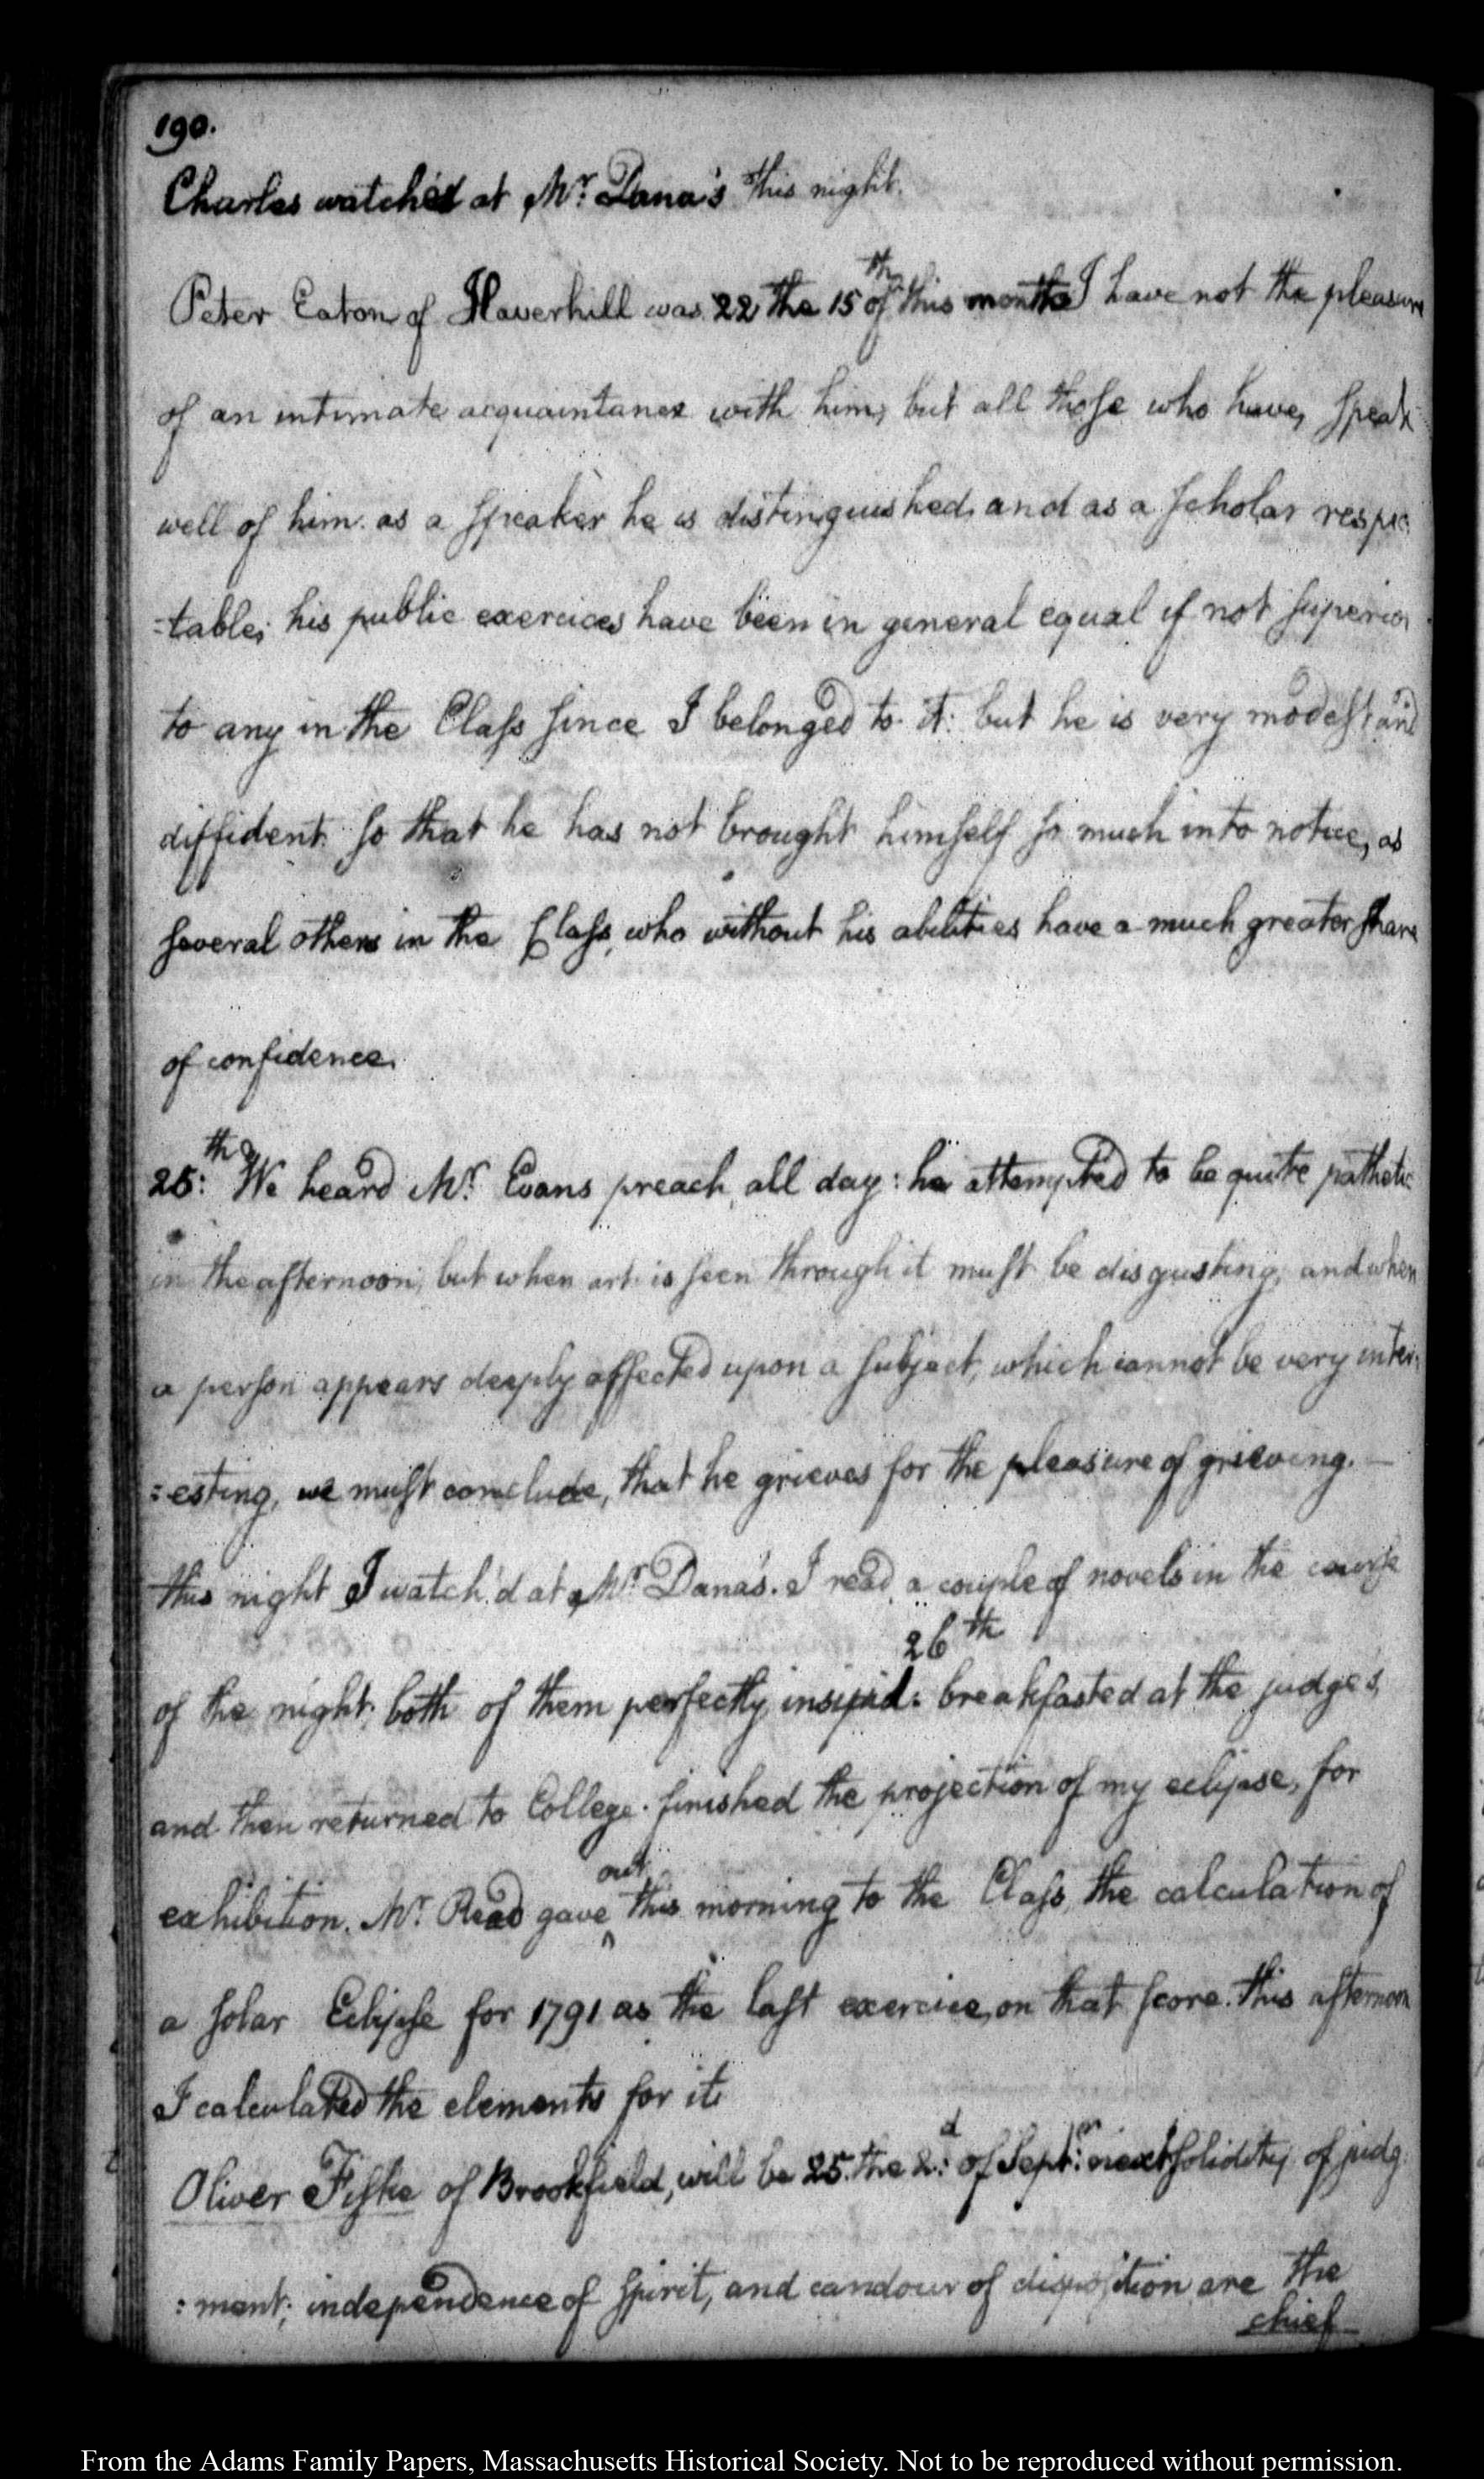 190.
Charles watched at Mr. Dana's this night.
Peter Eaton of Haverhill was 22 the 15th of this month I have not the pleasure
of an intimate acquaintance with him, but all those who have, speak
well of him. as a speaker he is distinguished, and as a scholar respec
=table; his public exercices have been in general equal if not superior
to any in the Class since I belonged to it: but he is very modest, and
diffident. so that he has not brought himself so much into notice, as
several others in the Class, who without his abilities have a much greater share
of confidence.
25:th We heard Mr. Evans preach, all day: he attempted to be quite pathetic
in the afternoon; but when art is seen through it must be disgusting, and when
a person appears deeply affected upon a subject, which cannot be very inter:
=esting, we must conclude, that he grieves for the pleasure of grieving. —
this night I watch'd at Mr. Dana's. I read a couple of novels in the course
26th
of the night, both of them perfectly insipid. breakfasted at the judge's,
and then returned to College. finished the projection of my eclipse, for
exhibition. Mr. Read gave out this morning to the Class, the calculation of
a solar Eclipse for 1791 as the last exercice, on that score. this afternoon
I calculated the elements for it.
Oliver Fiske of Brookfield, will be 25 the 2:d of Septr: next solidity of judg
:ment; independence of spirit, and candour of disposition are the
chief
From the Adams Family Papers, Massachusetts Historical Society. Not to be reproduced without permission.